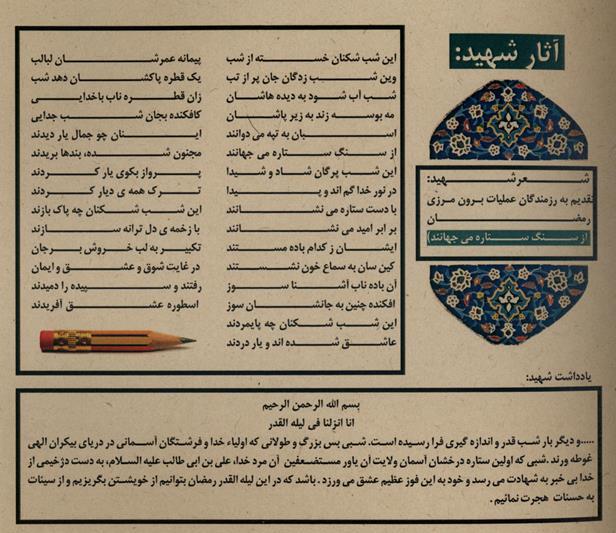 آثار شهید:
شعر شهید:
تقدیم به رزمندگان عملیات برون مرزی
رمضان
(از سنگ ستاره می جهانند)
این شب شکنان خسته از شب
وین شب زدگان جان پر از تب
شب آب شود به دیده هاشان
مه بوسه زند به زیر پاشان
اسبان به تپه می دوانند
از سنگ ستاره می جهانند
این شب پرگان شاد و شیدا
در نور خدا گم اند و پیدا
با دست ستاره می نشانند
بر ابر امید می نشانند
ایشان ز کدام باده مستند
کین سان به سماع خون نشستند
آن باده ناب آشنا سوز
افکنده چنین به جانشان سوز
این شب شکنان چه پایمردند
عاشق شده اند و یار دردند
پیمانه عمرشان لبالب
یک قطره پاکشان دهد شب
زان قطره ناب باخدایی
کافکنده بجان شب جدایی
اینان چو جمال یار دیدند
مجنون شده، بندها بریدند
پرواز بکوی یار کردند
ترک همه ی دیار کردند
این شب شکنان چه پاک بازند
با زخمه ی دل ترانه سازند
تکبیر به لب خروش بر جان
در غایت شوق و عشق و ایمان
رفتند و سپیده را دمیدند
اسطوره عشق آفریدند
یادداشت شهید:
بسم الله الرحمن الرحیم
انا انزلنا فی لیله القدر
.....و دیگر بار شب قدر و اندازه گیری فرا رسیده است. شبی بس بزرگ و طولانی که اولیاء خدا و فرشتگان آسمانی در دریای بیکران الهی
غوطه ورند .شبی که اولین ستاره درخشان آسمان ولایت آن یاور مستضعفین آن مرد خدا، علی بن ابی طالب علیه السلام، به دست دژخیمی از
خدا بی خبر به شهادت می رسد و خود به این فوز عظیم عشق می ورزد . باشد که در این لیله القدر رمضان بتوانیم از خویشتن بگریزیم و از سیئات
به حسنات هجرت نمائیم .